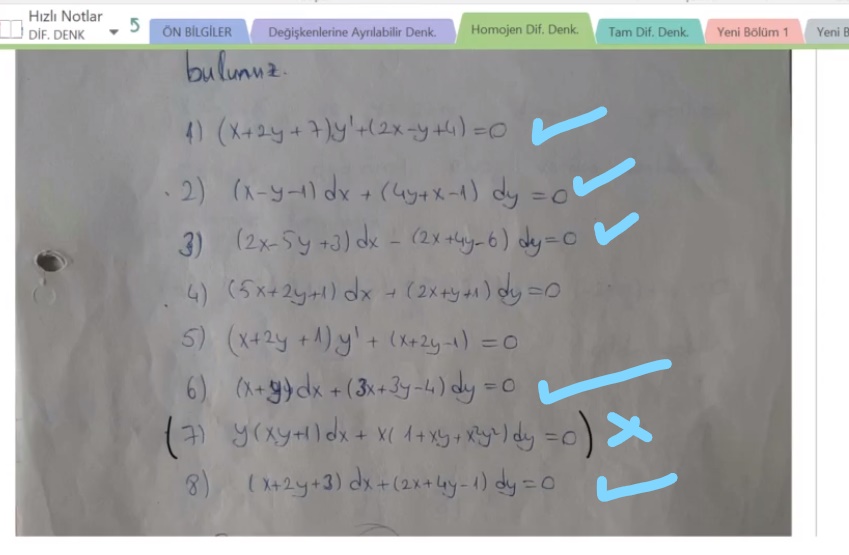 Hızlı Notlar
DİF. DENK
ÖN BİLGİLER
Değişkenlerine Ayrılabilir Denk.
Homojen Dif. Denk.
Tam Dif. Denk.
Yeni Bölüm 1
Yeni B
bulunuz.
1) (x+2y+7)y'+(2x-y+4)=0
2) (x-y-1)dx + (4y+x-1) dy =0
3) (2x-5y+3)dx - (2x+4y-6) dy=0
4) (5x+2y+1) dx + (2x+y+1) dy=0
5) (x+2y+1)y' + (x+2y-1) = 0
6) (x+y)dx + (3x+3y-4) dy =0
(7) y(xy+1)dx + x(1+xy+x²y²)dy =0)
8) (x+2y+3) dx+(2x+4y-1) dy=0